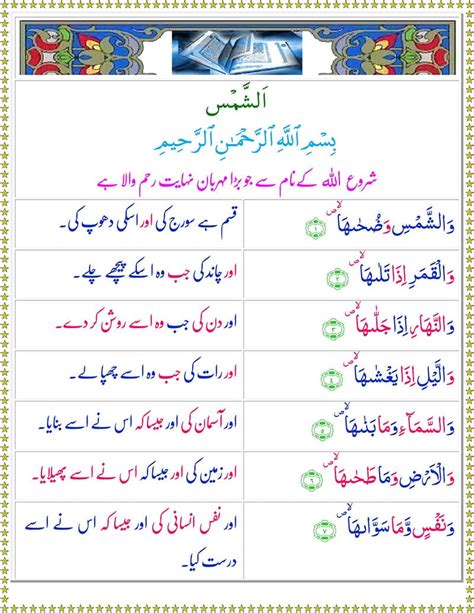 اَلشَّمْس
بِسْمِ ٱللَّهِ ٱلرَّحْمَـٰنِ ٱلرَّحِيمِ
شروع الله کے نام سے جو بڑا مہربان نہایت رحم والا ہے
وَالشَّمْسِ وَضُحٰىهَا ۙ۝۱
قسم ہے سورج کی اور اسکی دھوپ کی۔
وَالْقَمَرِ اِذَا تَلٰىهَا ۙ۝۲
اور چاند کی جب وہ اسکے پیچھے چلے۔
وَالنَّهَارِ اِذَا جَلّٰىهَا ۙ۝۳
اور دن کی جب وہ اسے روشن کر دے۔
وَالَّيْلِ اِذَا يَغْشٰىهَا ۙ۝۴
اور رات کی جب وہ اسے چھپا لے۔
وَالسَّمَآءِ وَمَا بَنٰىهَا ۙ۝۵
اور آسمان کی اور جیسا کہ اس نے اسے بنایا۔
وَالْاَرْضِ وَمَا طَحٰىهَا ۙ۝۶
اور زمین کی اور جیسا کہ اس نے اسے پھیلایا۔
وَنَفْسٍ وَّمَا سَوّٰىهَا ۙ۝۷
اور نفس انسانی کی اور جیسا کہ اس نے اسے
درست کیا۔